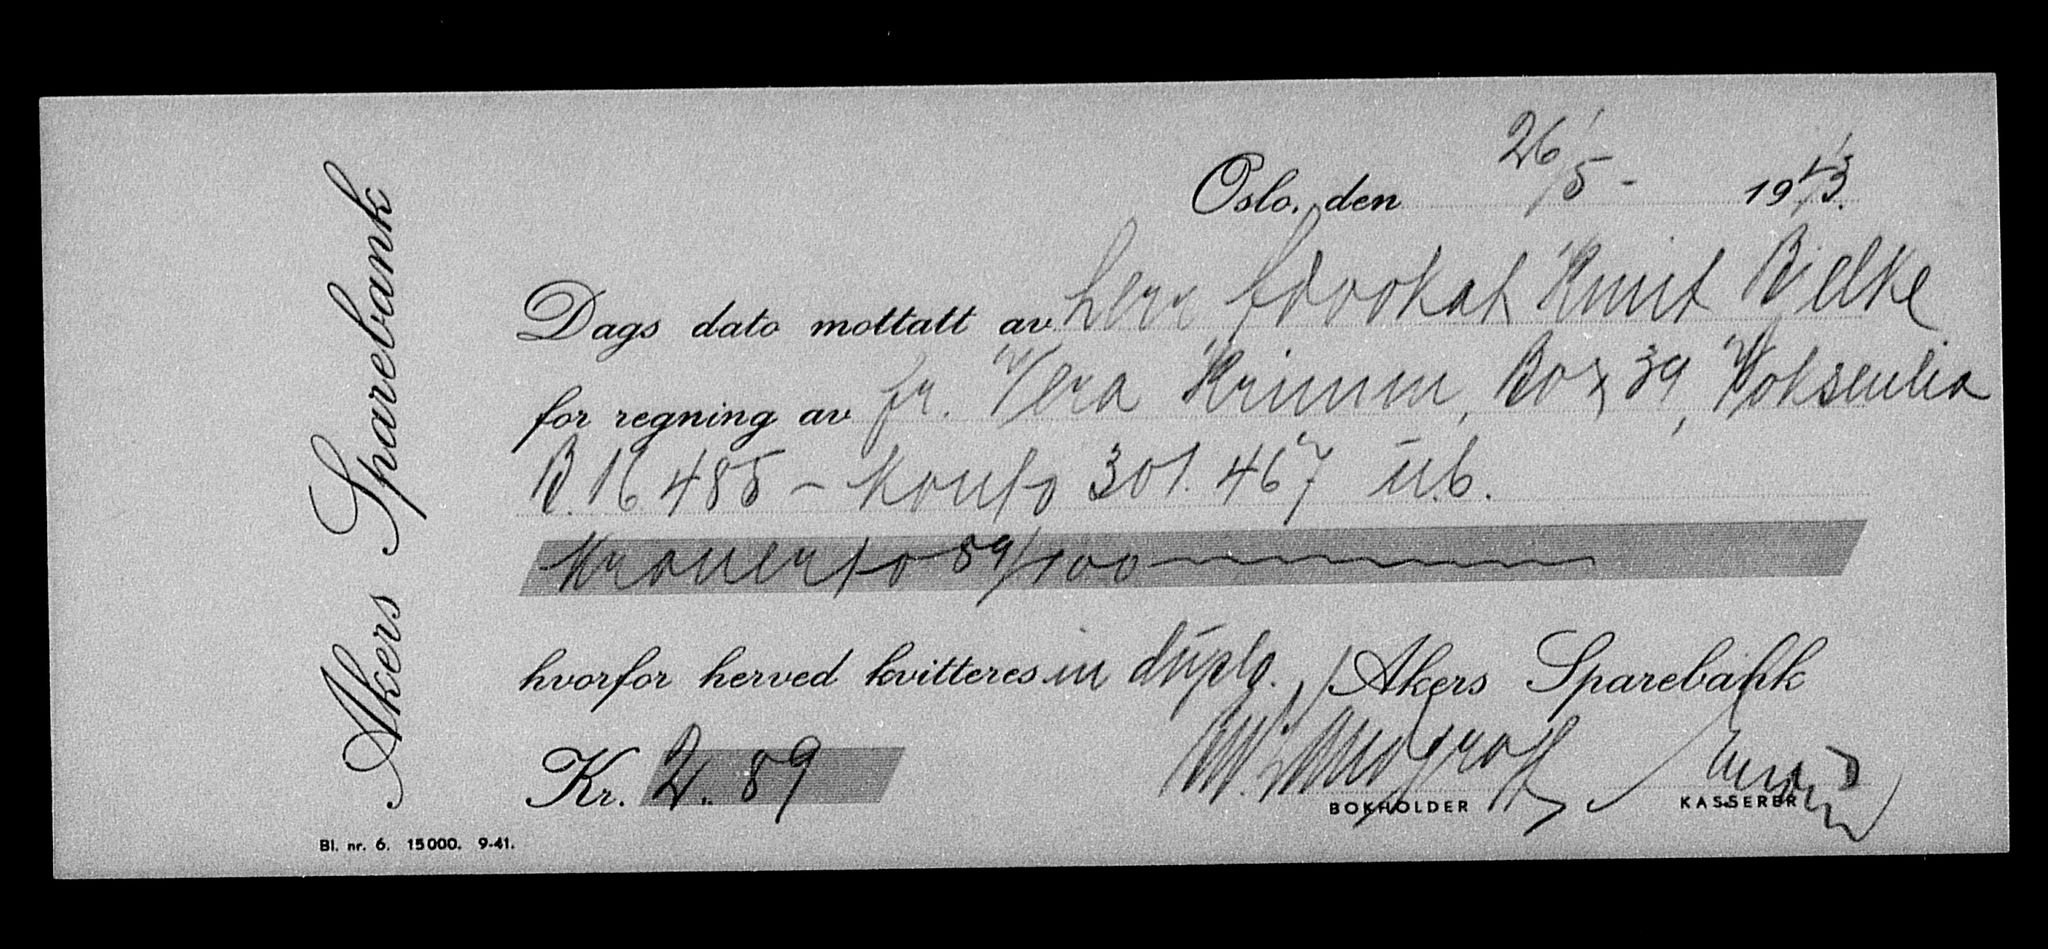 Akers Sparebank
Oslo, den 26/5 - 1943.
Dags dato mottatt av herr Advokat Knut Bielke
for regning av fr. Vera Krimm, Box 39, Voksenlia
B. 16485 - konto 301.467 u.b.
Kroner to 89/100
hvorfor herved kvitteres in duplo. Akers Sparebank
Kr. 2. 89
BOKHOLDER KASSERER
Bl. nr. 6. 15000. 9-41.